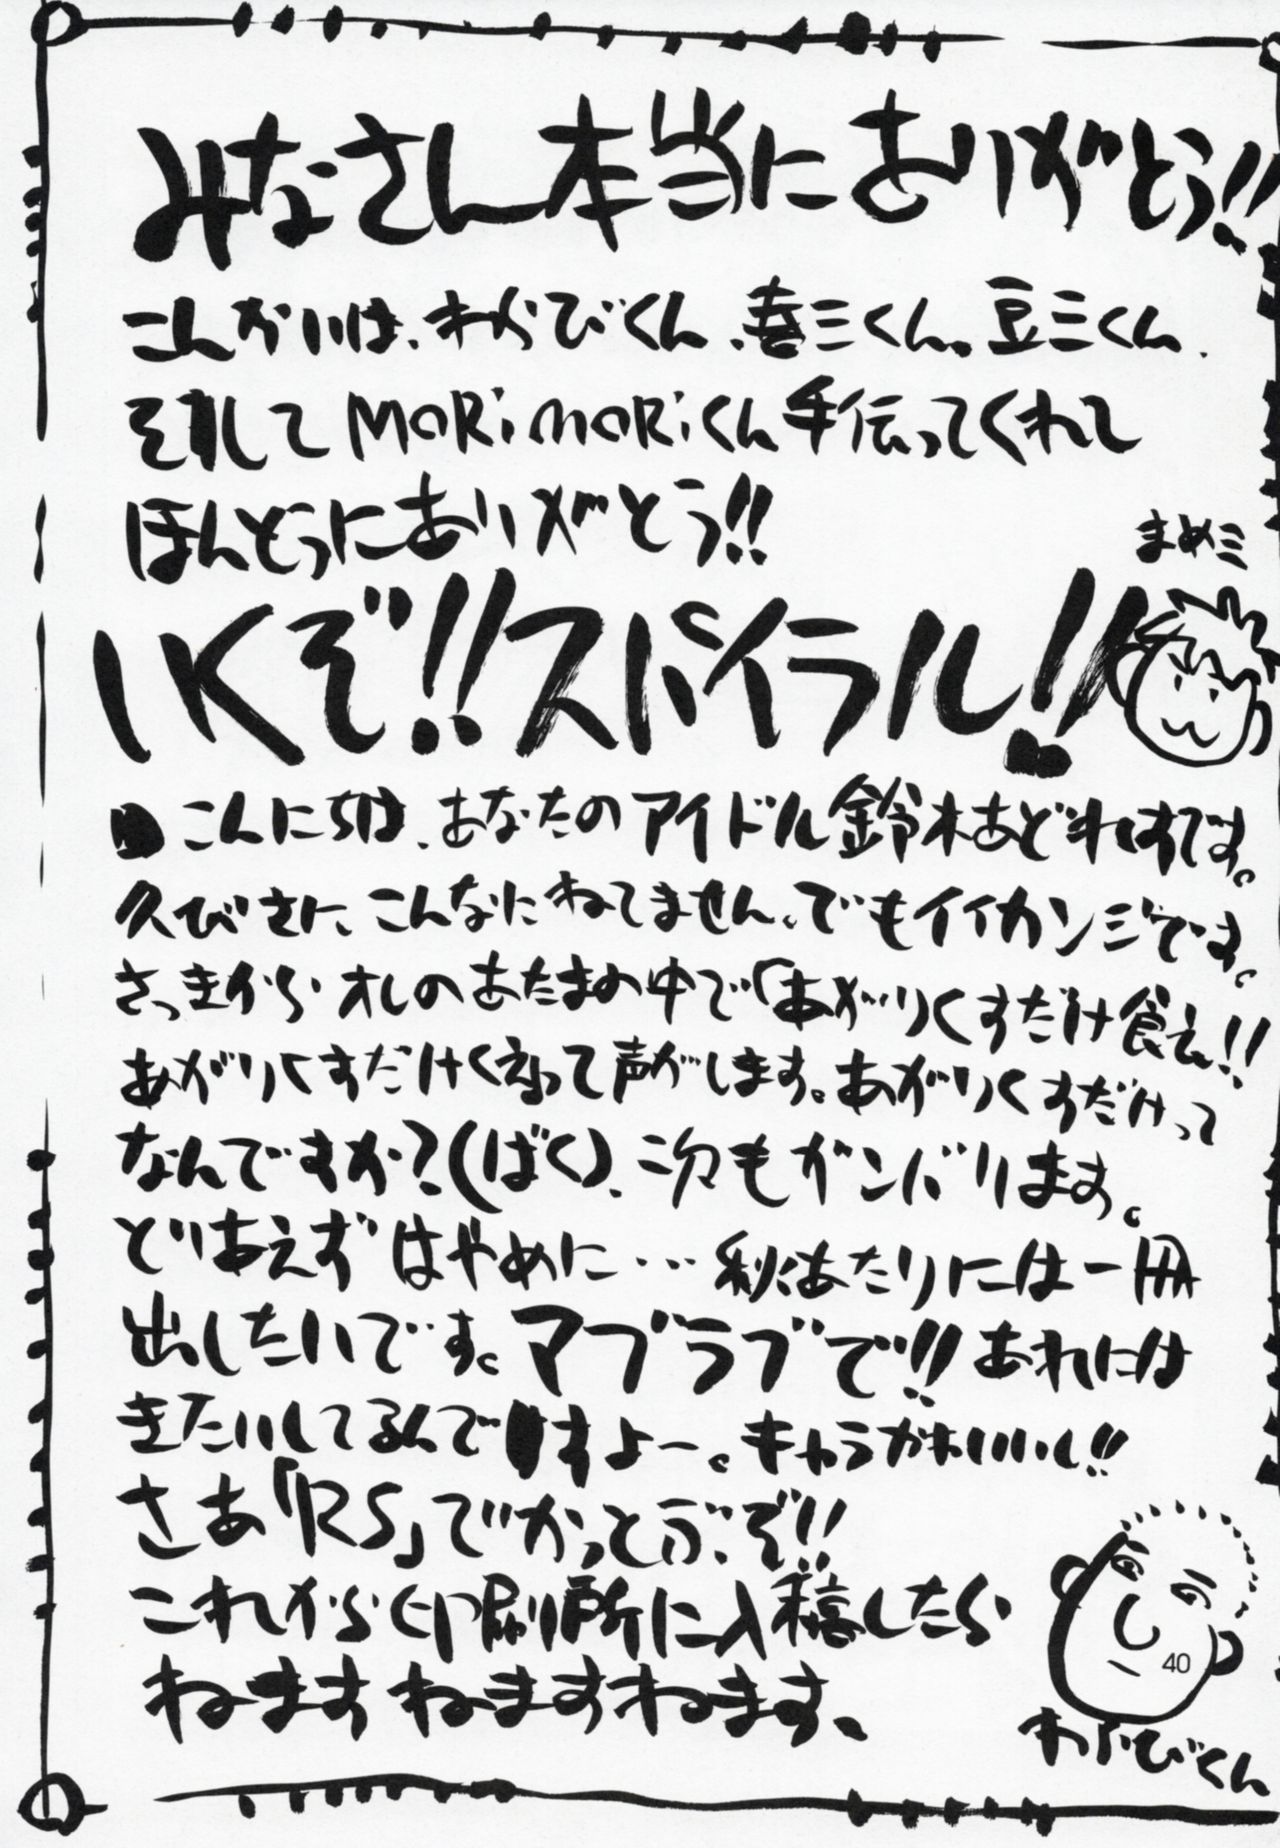 みなさん本当にありがとう!!
こんかいは、わらびくん、喜三くん、豆三くん、
そして MORiMORiくん手伝ってくれて
ほんとうにありがとう!!
まめミ
いくぞ!!スパイラル!!
こんにちは、あなたのアイドル鈴木あどれすです。
久びさに、こんなにねてません、でもイイカンジです。
さっきから オレのあたまの中で「あがりくすだけ食え!!
あがりくすだけくえって声がします。あがりくすだけって
なんですか?(ばく)、次もガンバリます。
とりあえず はやめに… 秋あたりには一冊
出したいです。マブラブで!!あれには
きたいしてるんですよー。キャラかわいいし!!
さあ「RS」でかっとぶぞ!!
これから印刷所に入稿したら
ねます ねますねます、
40
わらびくん